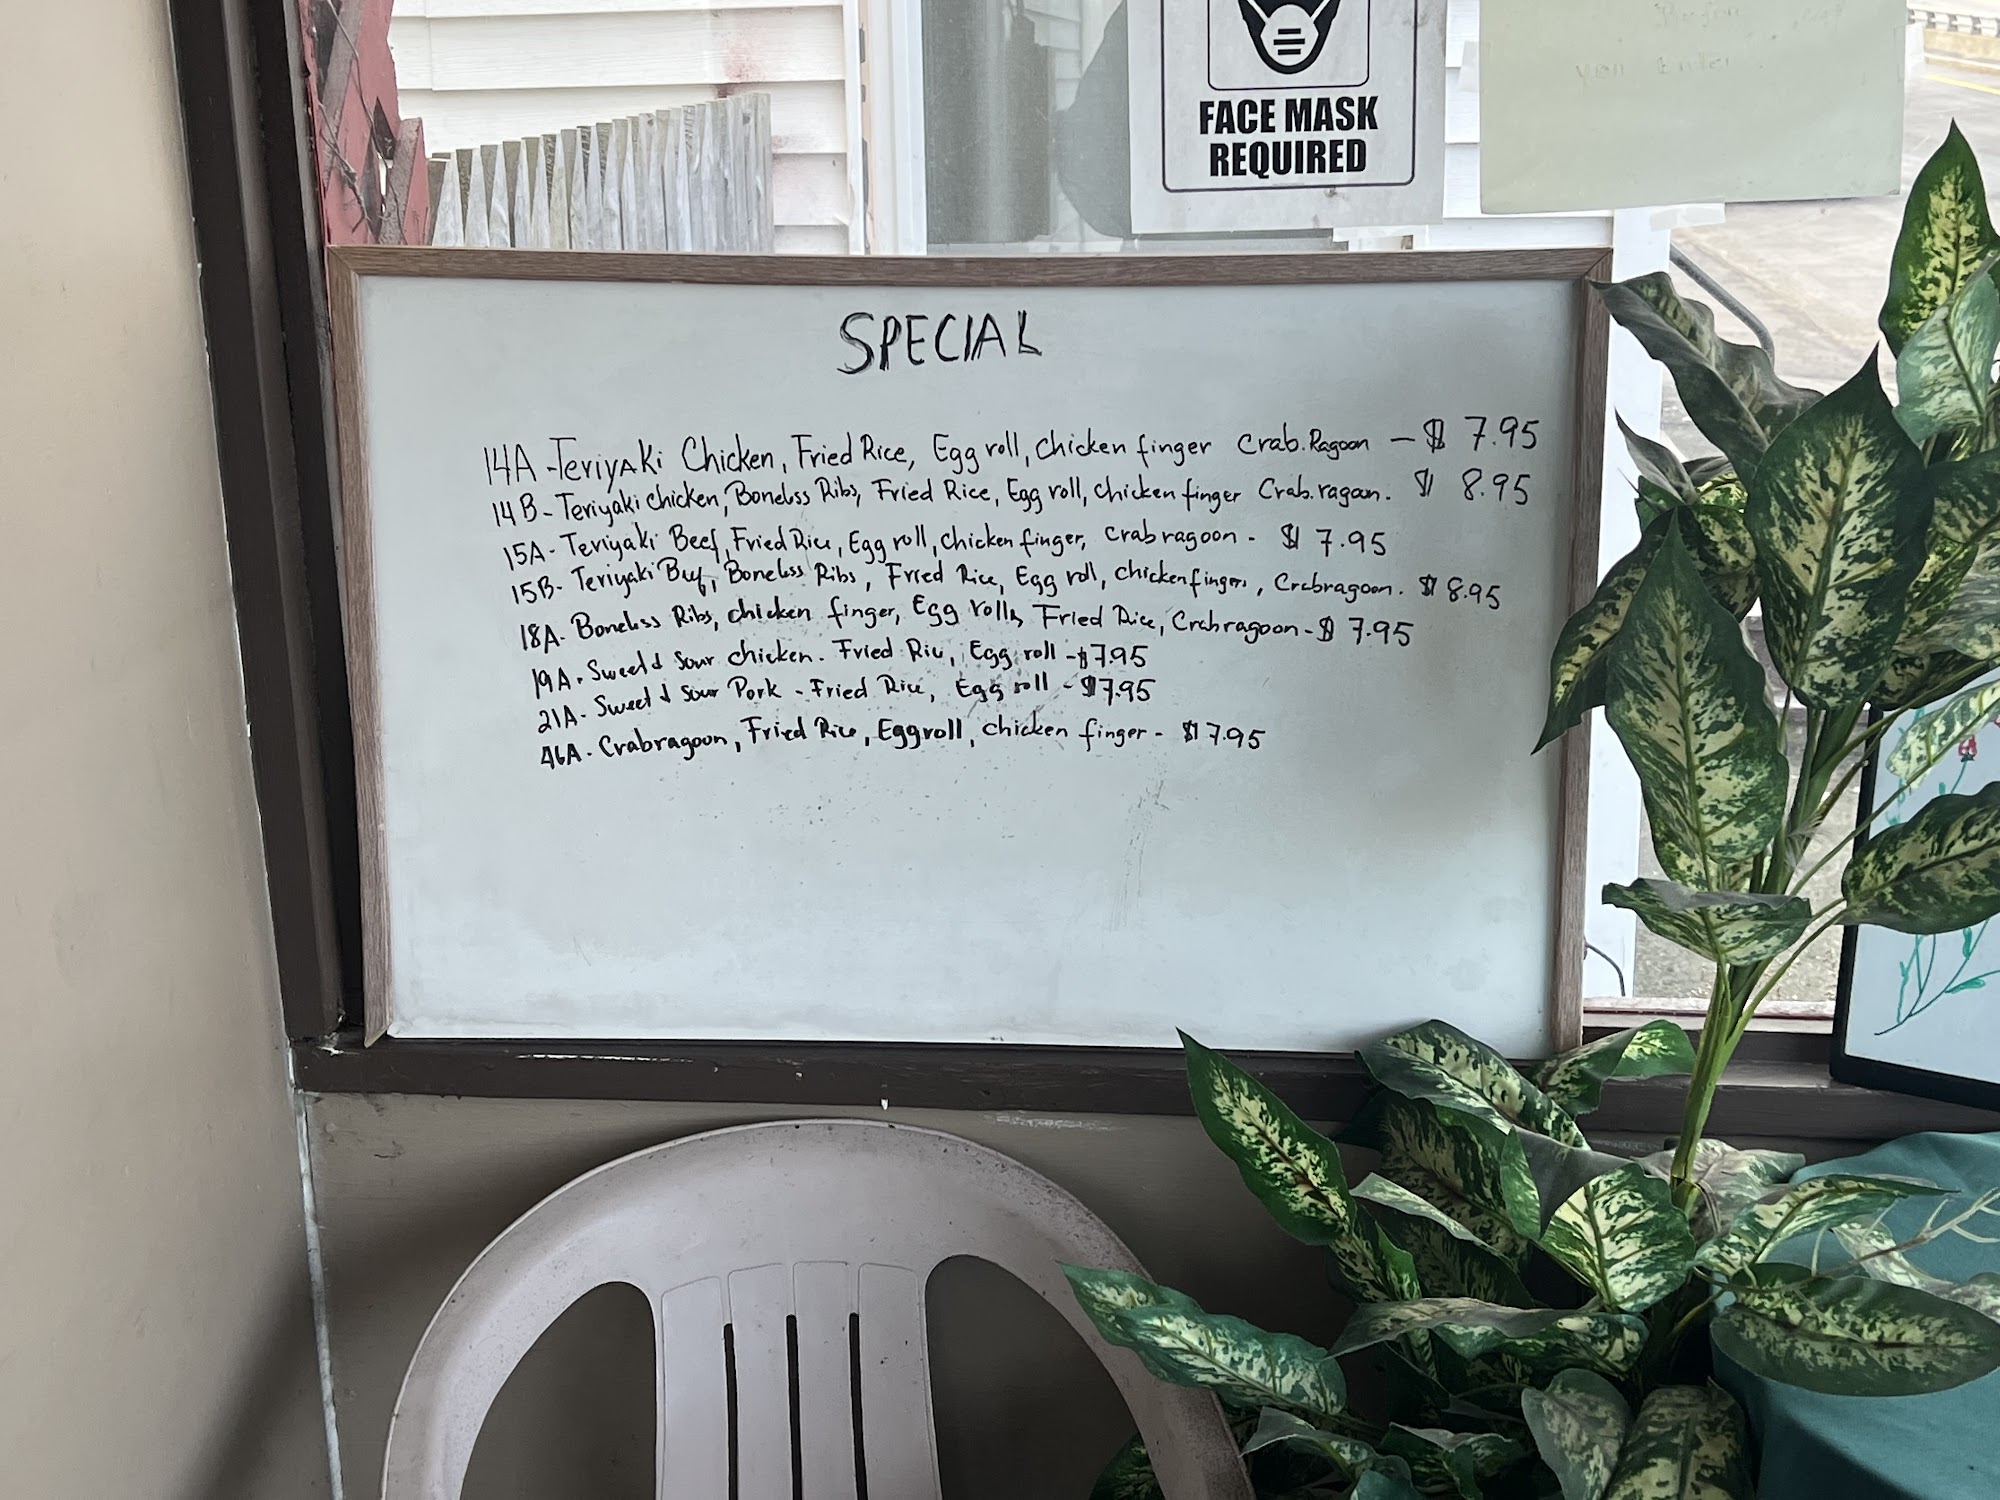 FACE MASK
REQUIRED
you Enter
SPECIAL
14A - Teriyaki Chicken, Fried Rice, Egg roll, chicken finger Crab.Ragoon - $ 7.95
14B - Teriyaki chicken, Boneless Ribs, Fried Rice, Egg roll, chicken finger Crab.ragoon. $ 8.95
15A - Teriyaki Beef, Fried Rice, Egg roll, chicken finger, Crabragoon - $ 7.95
15B - Teriyaki Beef, Boneless Ribs, Fried Rice, Egg roll, chicken fingers, Crabragoon. $ 8.95
18A - Boneless Ribs, chicken finger, Egg rolls, Fried Rice, Crabragoon - $ 7.95
19A. Sweet & Sour chicken - Fried Rice, Egg roll - $7.95
21A - Sweet & Sour Pork - Fried Rice, Egg roll - $7.95
46A - Crabragoon, Fried Rice, Eggroll, chicken finger - $7.95